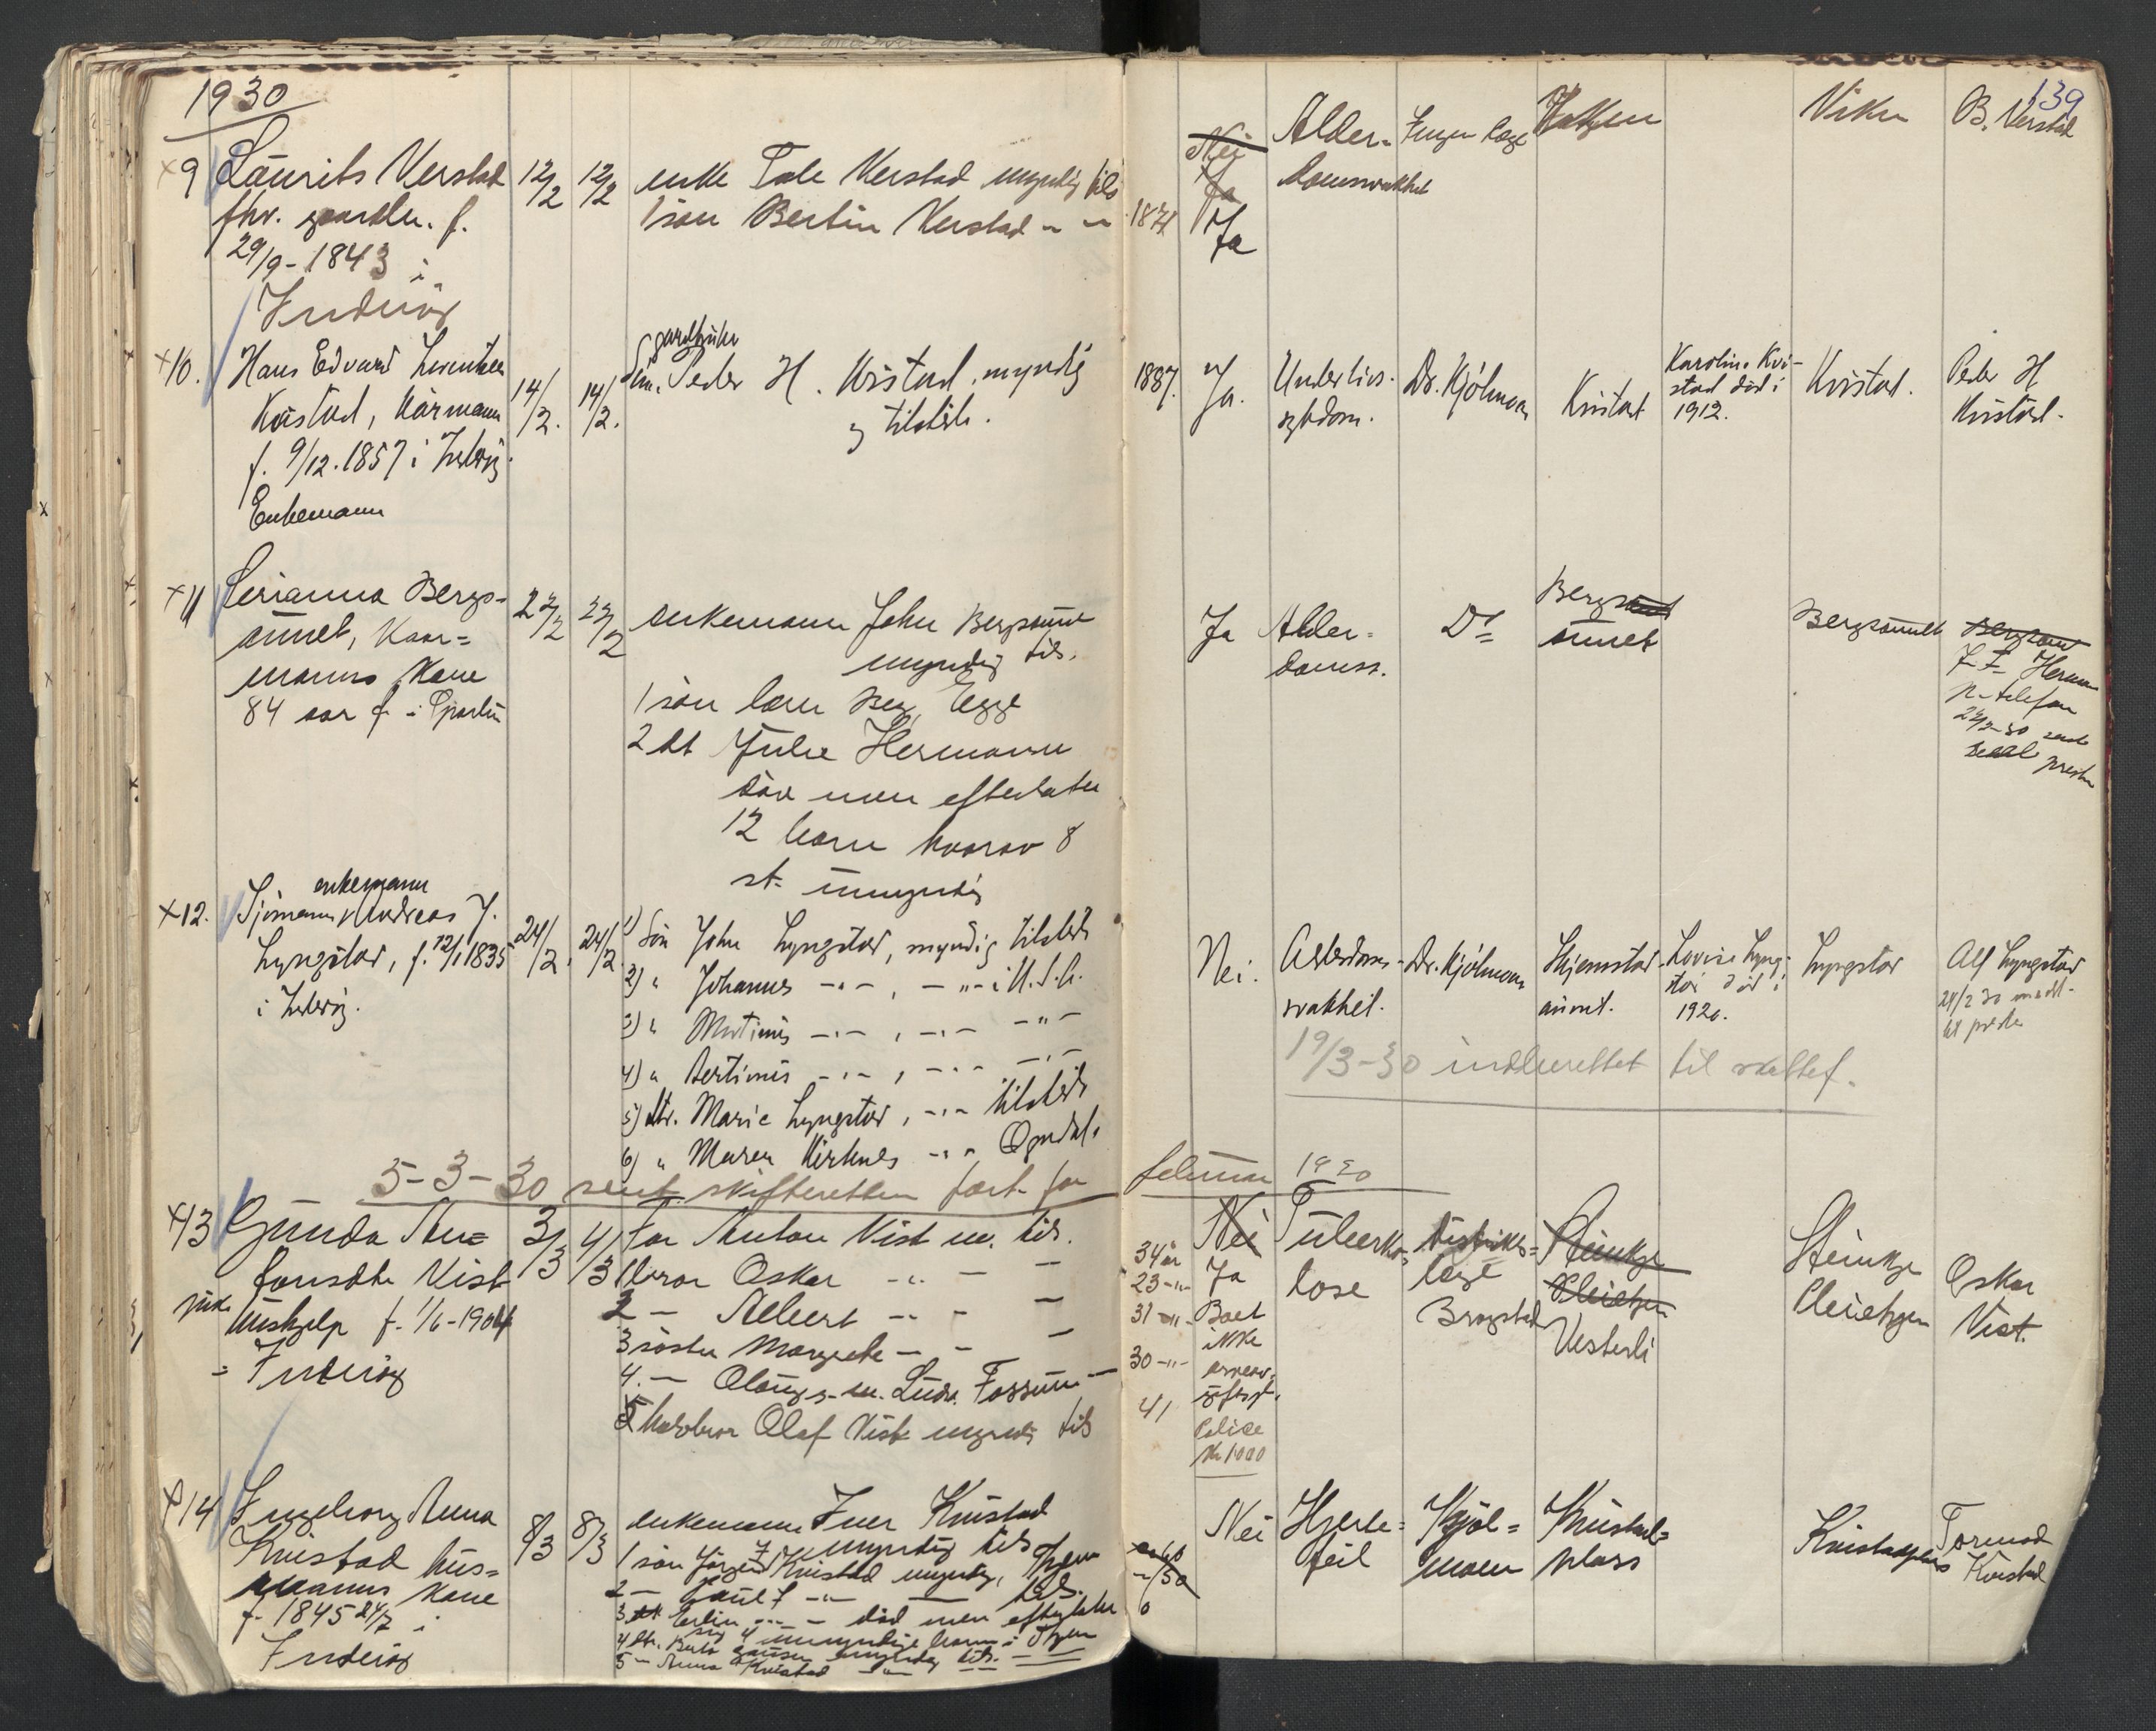 1930
139
9 Laurits Verstad
fhv. gaardbr. f.
29/9-1843 i
Inderöy
12/2
12/2
enke Tale Verstad myndig tils
1 sön Bertin Verstad - "
1871
Nei
Ja
Ja
Alder-
domsvakhet
Ingen læge
Viken
B. Verstad
10. Hans Edvard
Kvistad, kårmann
f. 9/12.1857 i Inderöy.
Enkemann
14/2.
14/2.
gardbruker
Sön. Peder H. Kvistad, myndig
og tilstede.
1887.
Ja.
Underlivs-
sykdom.
Dr. Kjölmoen
Kvistad
Karoline Kvi-
stad död i
1912.
Kvistad.
Peder H
Kvistad.
11 Berg-
aunet, Kaar-
manns kone
84 aar f i Sparbu
22/2
22/2
enkemann John Bergsaunet
myndig tils.
1 sön Berg, Egge
2 dt Julie Hermann
död men efterlater
12 barn hvorav 8
st. umyndig
Ja
Alder-
domss.
Do
Bergs
aunet
Bergsaunet
Hermann
p. telefon
22/2-30
12. enkemann
Sjömann Andreas J.
Lyngstad, f. 12/1 1835
i Inderöy.
24/2.
24/2.
1) Sön John Lyngstad, myndig tilstede
2) " Johannes -"-, -"- i U.S.A.
3) " Martinus -"-, -"- -"-
4) " Bertinus -"-, -"- -"-
5) dtr. Marie Lyngstad, -"- tilstede
6) " Maren Kirknes -"- Opdal.
Nei.
Alderdoms-
svakhet.
Dr. Kjölmoen
Hjemstad
aunet.
Lovise Lyng-
stad död i
1920.
Lyngstad
Alf Lyngstad
24/2 30
19/3-30 indberettet til skattef.
5-3-30 sent skifteretten fort. for februar 1930
13 Gunda An-
tonsdtr Vist
ugift
hushjelp f. 1/6-1904
i Inderöy
3/3
4/3
Far Anton Vist m. tils.
1 bror Oskar -"- - -
2 - Albert -"- - -
3 söster Margrete - - -
4. - g. m. Ludv. Fossum -
5 halvbror Olaf Vist myndig tils
34 år
23 -"-
31 -"-
30 -"-
41
Nei
Ja
Boet
ikke
Police
kr 1000
Tuberku-
lose
Distrikts-
læge
Brogstad
Steinkjer
Vesterli
Steinkjer
Oskar
Vist.
14 Ingeborg Anna
Kvistad hus-
manns kone
f. 1845 24/7 i
Inderöy
8/3
8/3
enkemann Iver Kvistad
myndig tils
1 sön Jörgen Kvistad myndig,
2 - Paul I -"- - tils.
3 - död men efterlater
sig 4 umyndige barn i
4 dt. myndig tils.
5 - Anna Kvistad -"-
Nei
Hjerte-
feil
Kjöl-
moen
Kvistad-
plass
Kvistadplass
Tormod
Kvistad